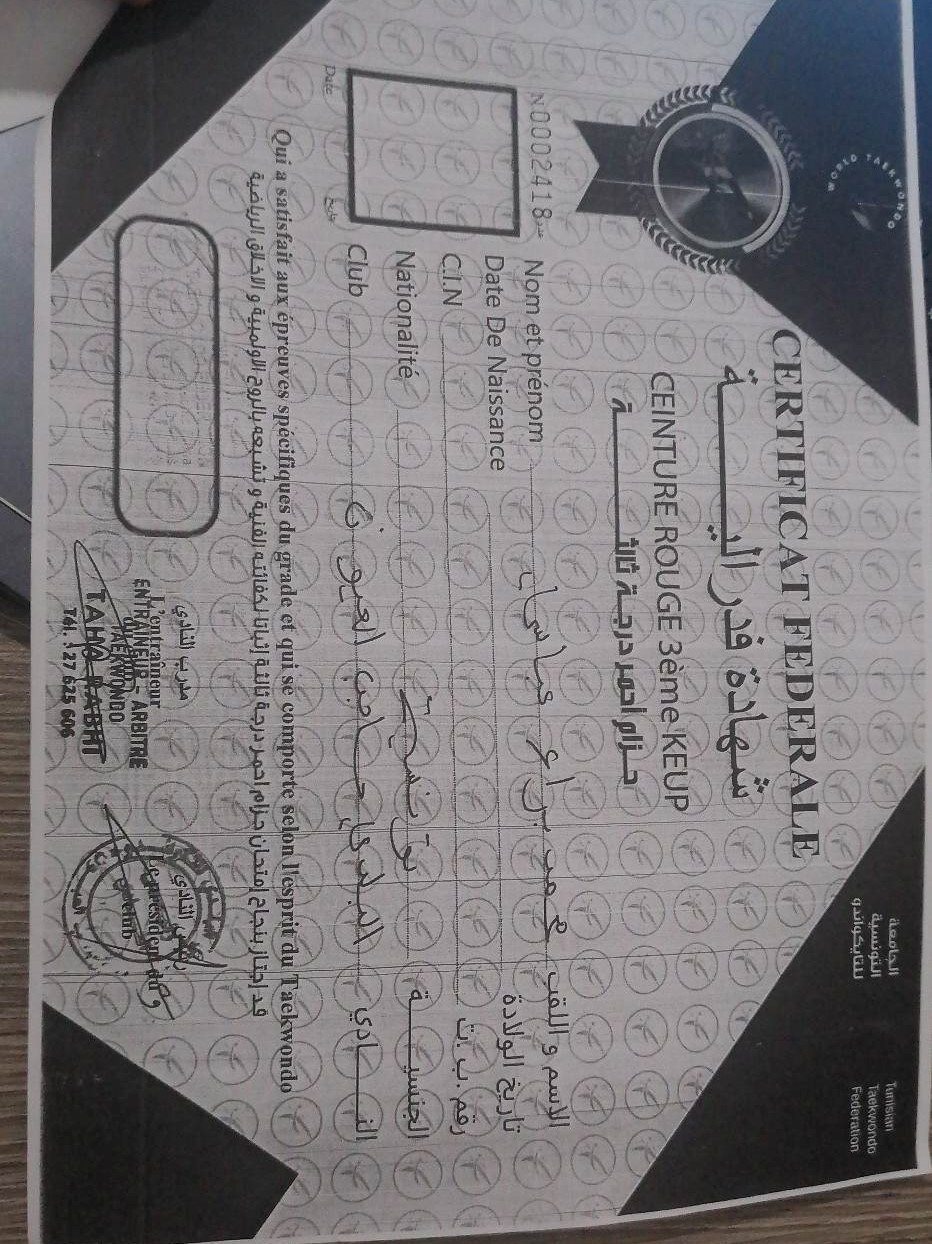 WORLD TAEKWONDO
الجامعة
التونسية
للتايكواندو
Tunisian
Taekwondo
Federation
CERTIFICAT FEDERALE
شهادة فدراليـــــــة
CEINTURE ROUGE 3ème KEUP
حزام احمر درجة ثالثـــــــة
N0002418 عدد
Nom et prénom الاسم و اللقب
Date De Naissance تاريخ الولادة
C.I.N رقم.ب.ت
Nationalité تونسية الجنسيـــة
Club النـــادي
Date تاريخ
Qui a satisfait aux épreuves spécifiques du grade et qui se comporte selon l'esprit du Taekwondo
قد إجتاز بنجاح إمتحان حزام احمر درجة ثالثة إثباتا لكفائته الفنية و تشبعه بالروح الاولمبية و الاخلاق الرياضية
مدرب النادي
L'entraîneur
ENTRAINEUR - ARBITRE
TAEKWONDO
TAHA RABHI
Tél. : 27 625 606
رئيس النادي
Le président du
club